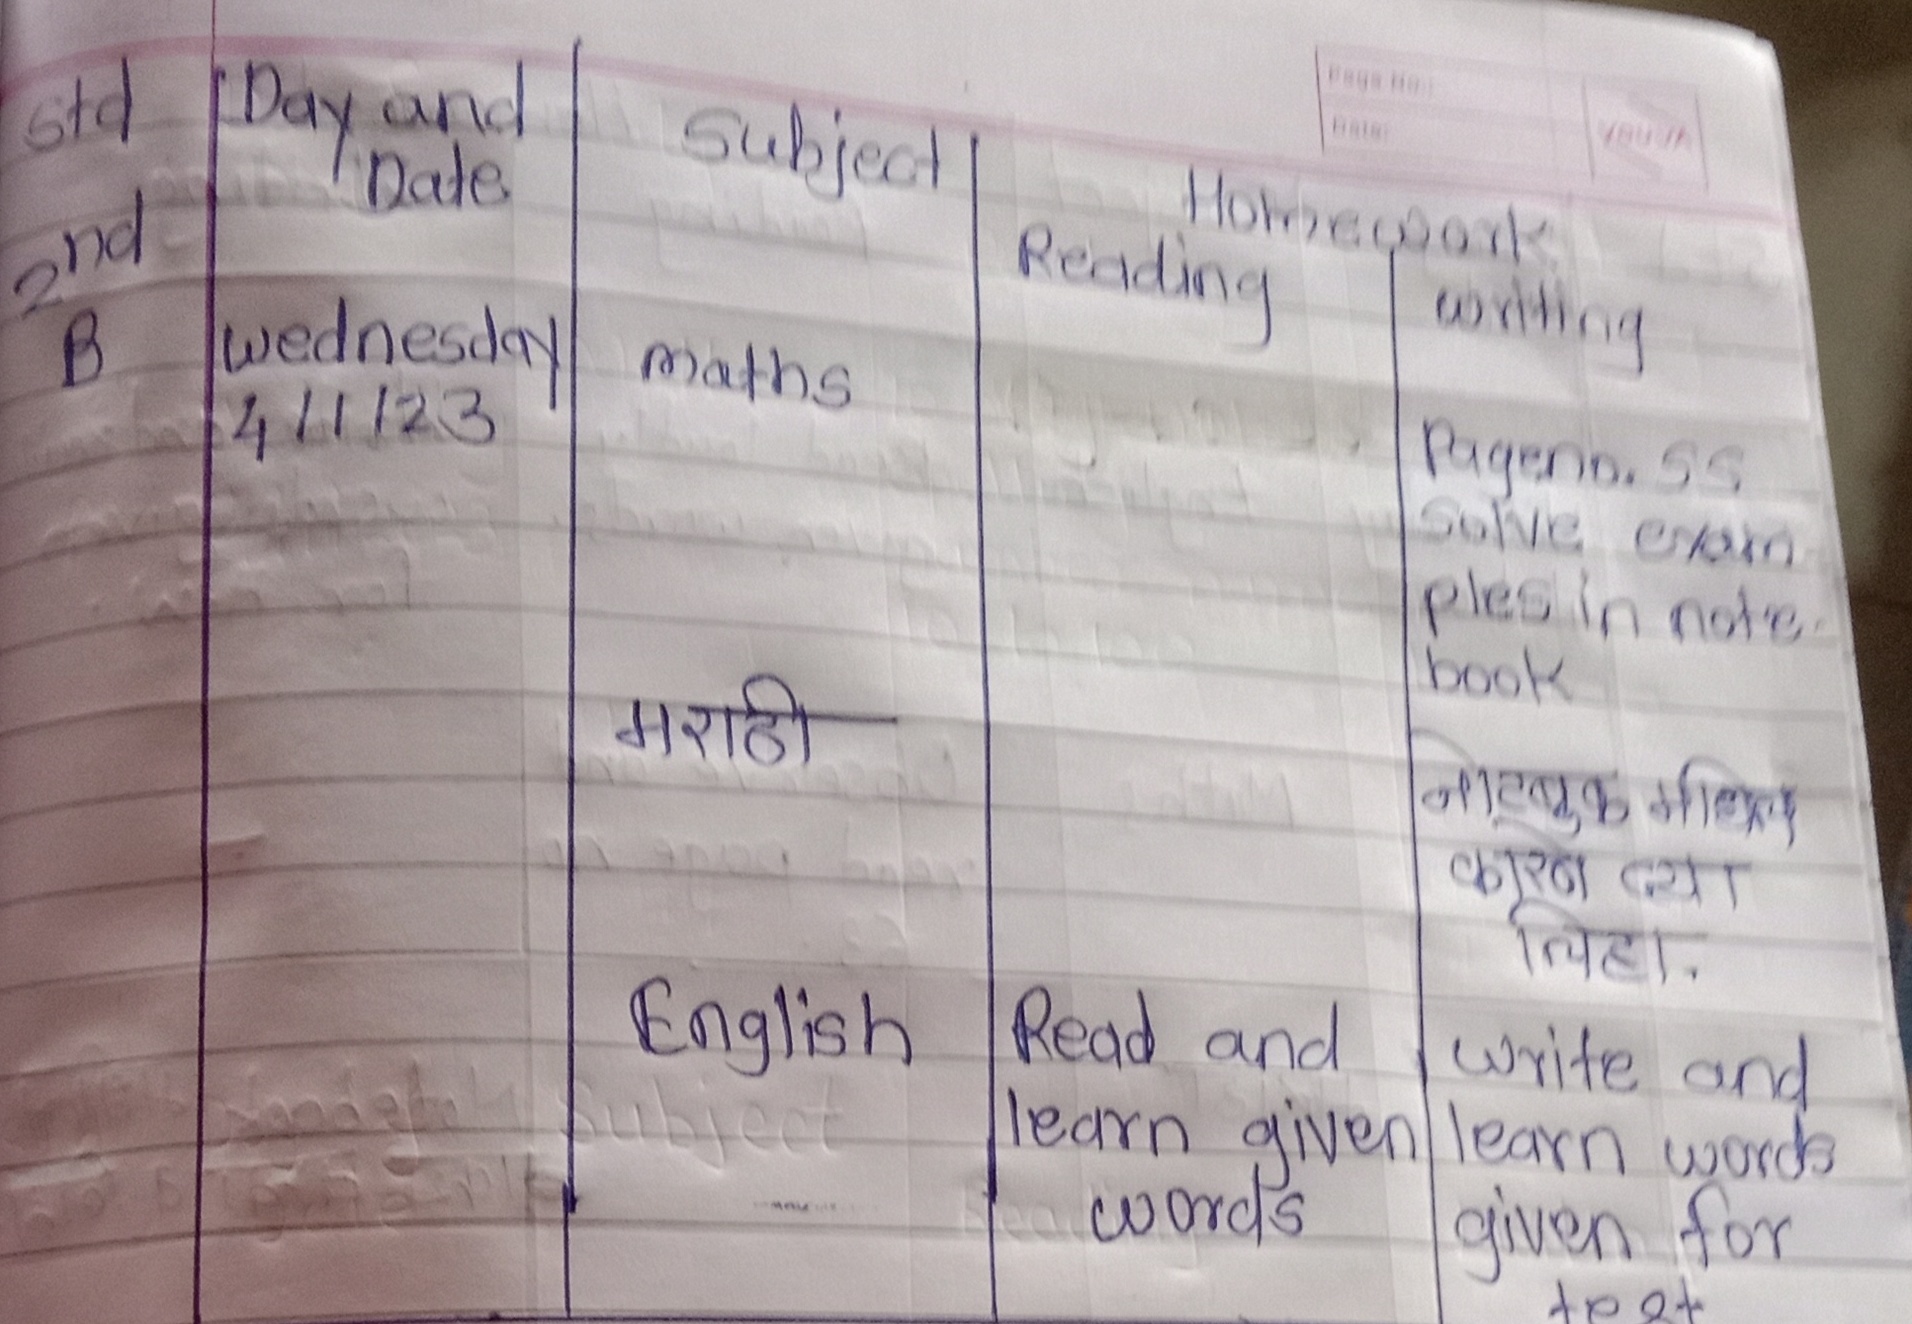 Page No.:
Date:
YOUVA
Std
Day and
Date
Subject
Homework
Reading
writing
2nd
B
wednesday
4/1/23
maths
Pageno. 55
solve exam
ples in note
book
मराठी
नोटबुक
लिहा.
English
Read and
learn given
words
write and
learn words
given for
test